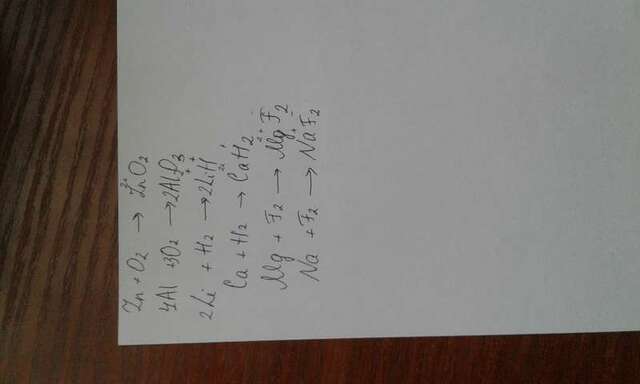 Zn + O2 → Zn²⁺O2
4Al + 3O2 → 2Al2O3
2Li + H2 → 2Li⁺H⁺
Ca + H2 → Ca²⁺H2⁺
Mg + F2 → Mg²⁺F2⁻
Na + F2 → Na⁺F2⁻